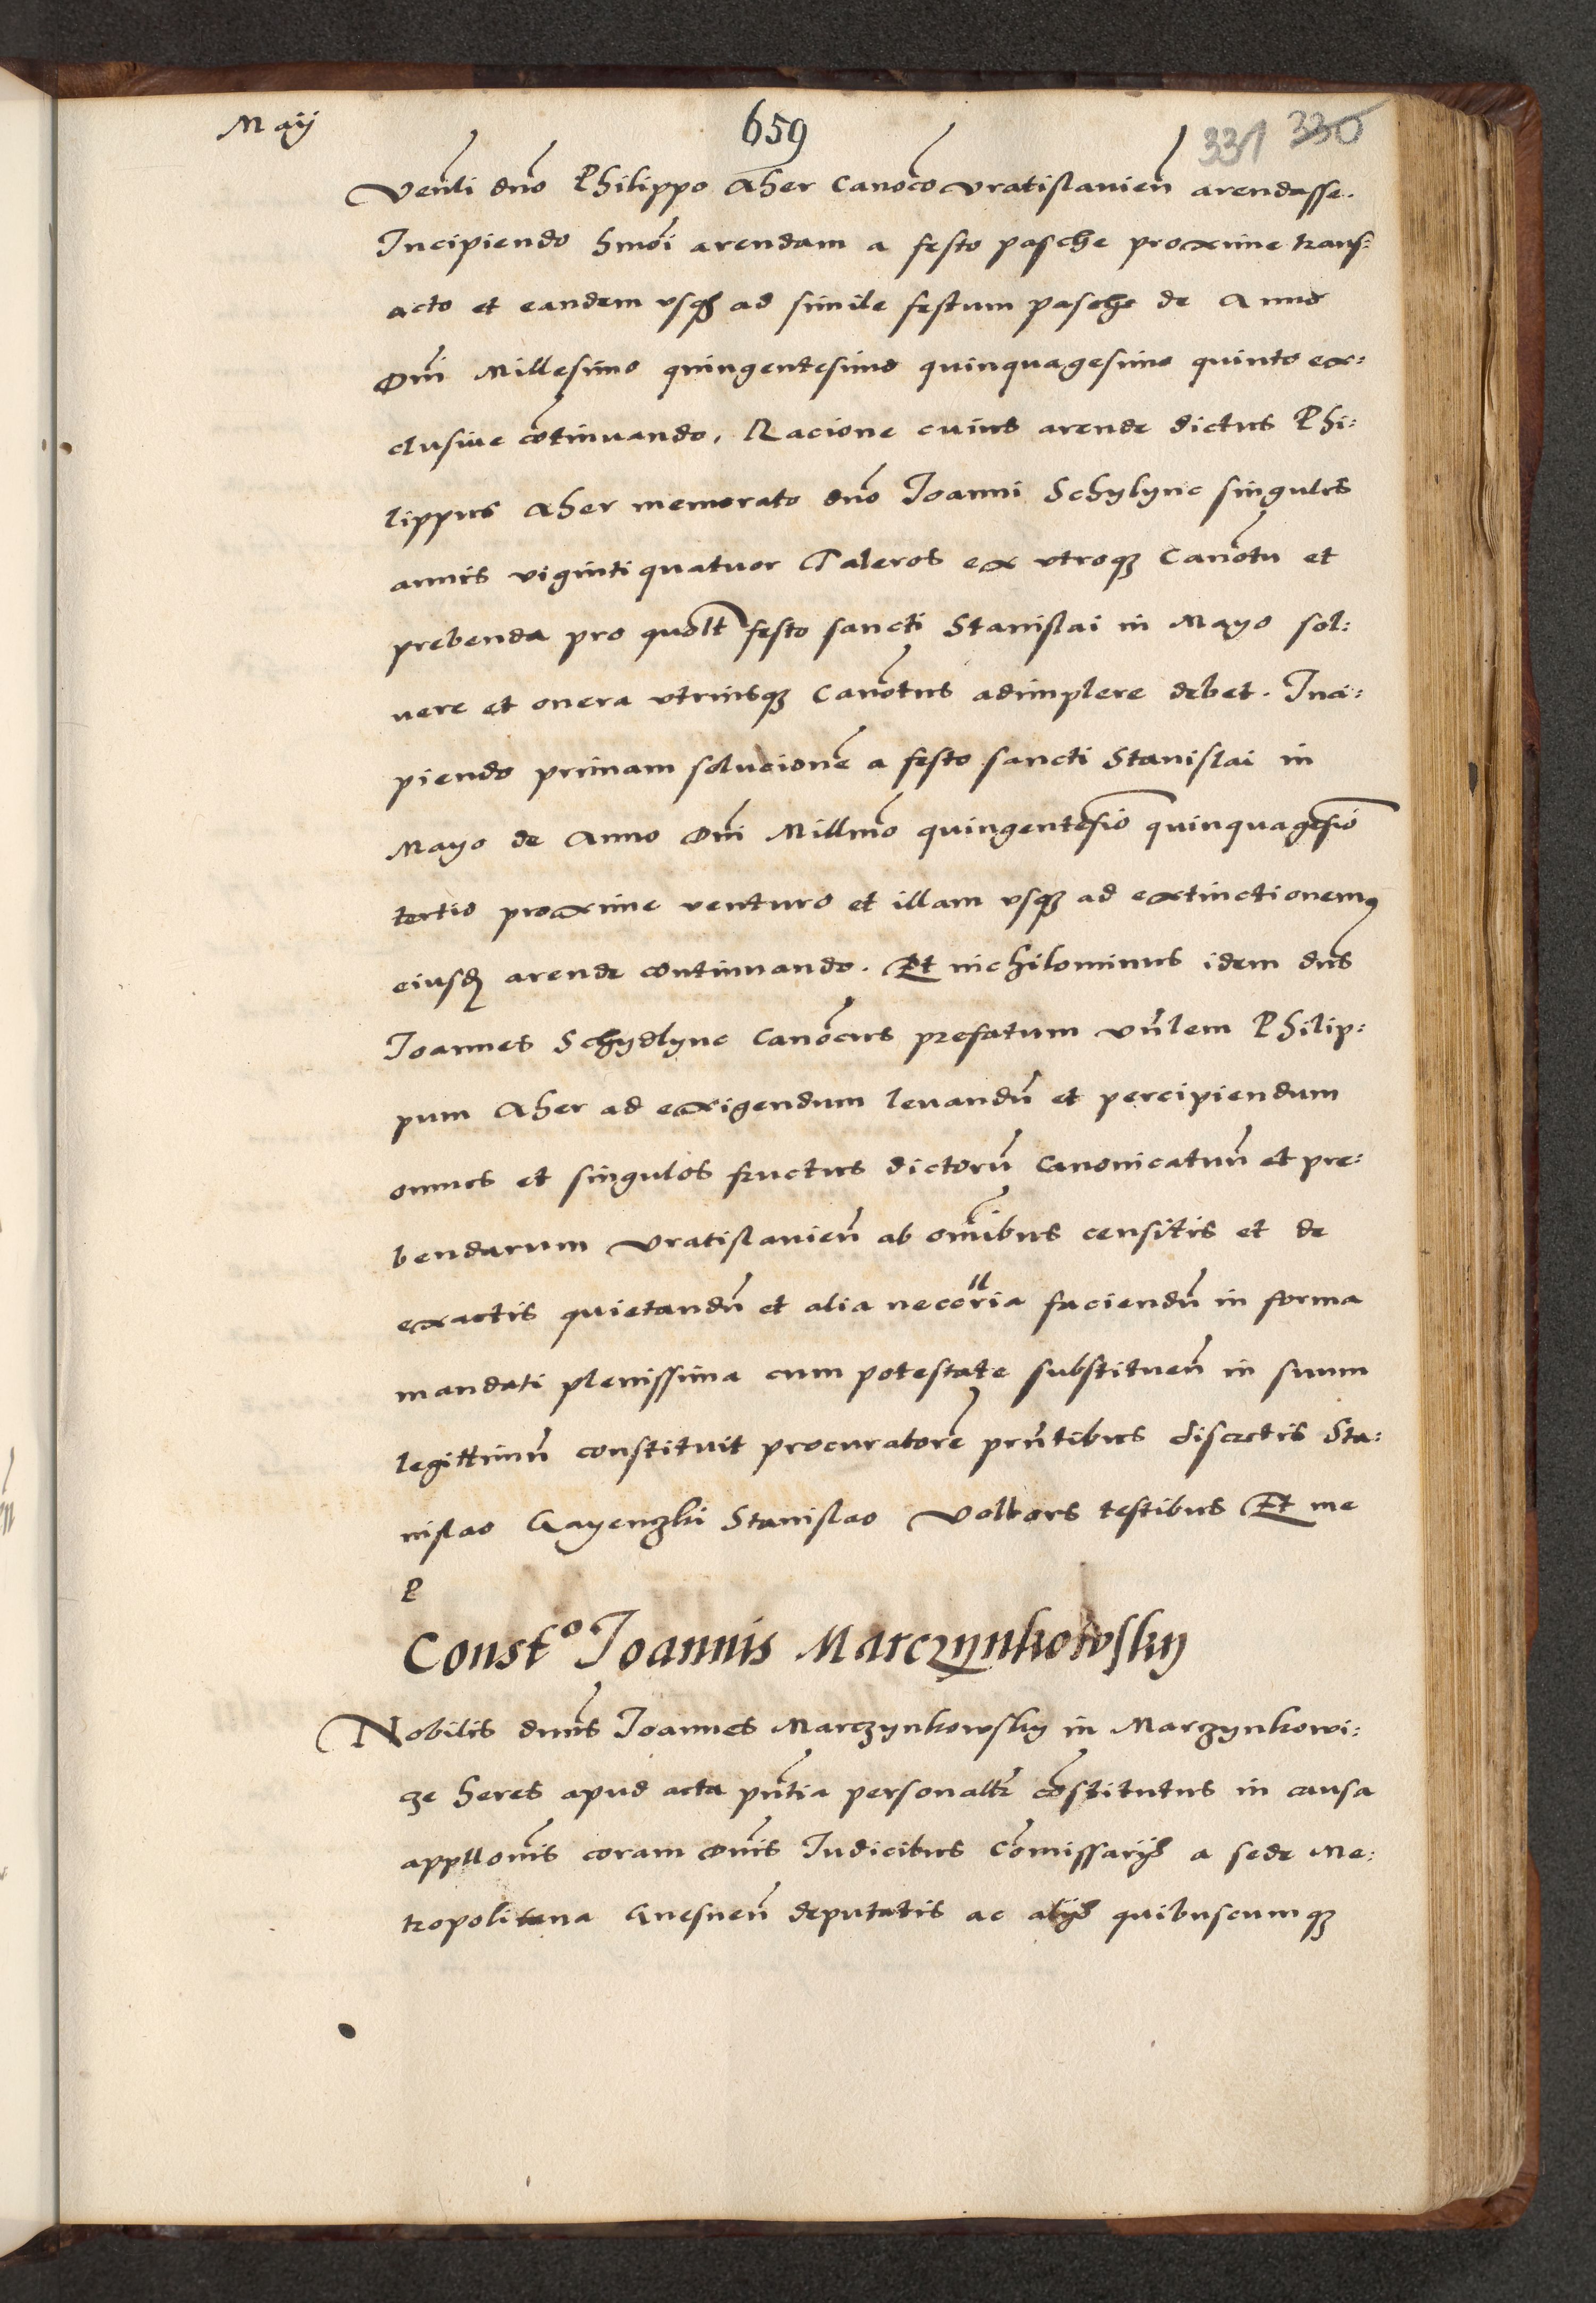 Maij
659
331 330
Venli dno Philippo Aher Canoco Vratislauien arendasse.
Incipiendo hmoi arendam a festo pasche proxime trans:
acto et eandem vsq ad simile festum pasche de Anno
Dni Millesimo quingentesimo quinquagesimo quinto ex:
clusiue cotinuando, Racione cuius arende dictus Phi:
lippus Aher memorato dno Joanni Schylync singulis
annis viginti quatuor Taleros ex vtroq Canotu et
prebenda pro quolt festo sancti Stanislai in Mayo sol:
uere et onera vtriusq Canotus adimplere debet. Inci:
piendo primam solucione a festo sancti Stanislai in
Mayo de Anno Dni Millmo quingentesio quinquagesio
tertio proxime venturo et illam vsq ad extinctionem
eiusd arende continuando. Et nichilominus idem dns
Joannes Schydlync Canocus prefatum vnlem Philip:
pum Aher ad exigendum leuandu et percipiendum
omnes et singulos fructus dictoru Canonicatuu et pre:
bendarum Vratislauien ab omibus censitis et de
exactis quietandu et alia neccria faciendu in forma
mandati plenissima cum potestate substituen in suum
legittimu constituit procuratore prntibus discretis Sta:
nislao Gayenzki Stanislao Volbors testibus Et me
P
Const° Joannis Marczynkowsky
Nobilis dnus Joannes Marczynkowsky in Marzynkowi:
cze heres apud acta pntia personaltr costitutus in causa
appllonis coram Dnis Judicibus Comissarijs a sede Me:
tropolitana Gnesnen deputatis ac alijs quibuscumq